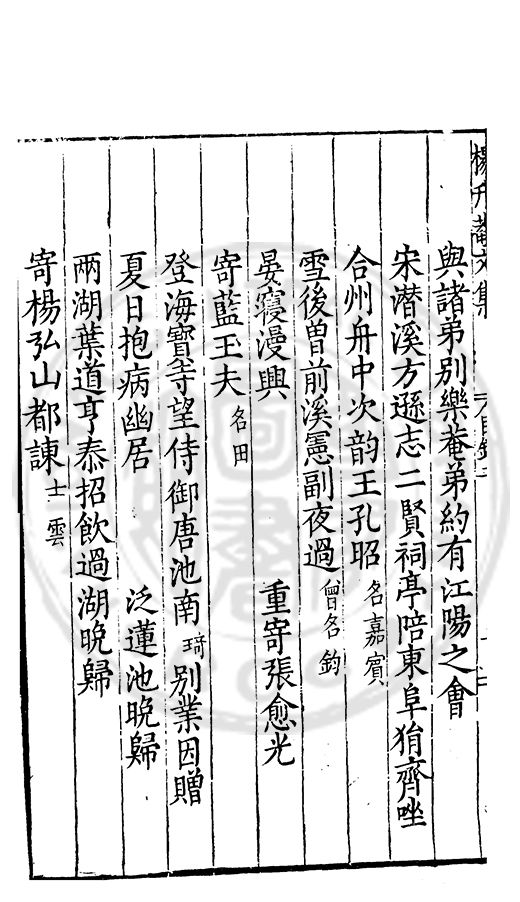 楊升菴文集
與諸弟別樂菴弟約有江陽之會
宋潛溪方遜志二賢祠亭陪東阜狷齊唑
合州舟中次韵王孔昭名嘉賓
雪後曽前溪憲副夜過曾名鈞
晏寢漫興 重寄張愈光
寄藍玉夫名田
登海寶寺望侍御唐池南琦別業因贈
夏日抱病幽居 泛蓮池晚歸
兩湖葉道亨泰招飲過湖晚歸
寄楊弘山都諫士雲